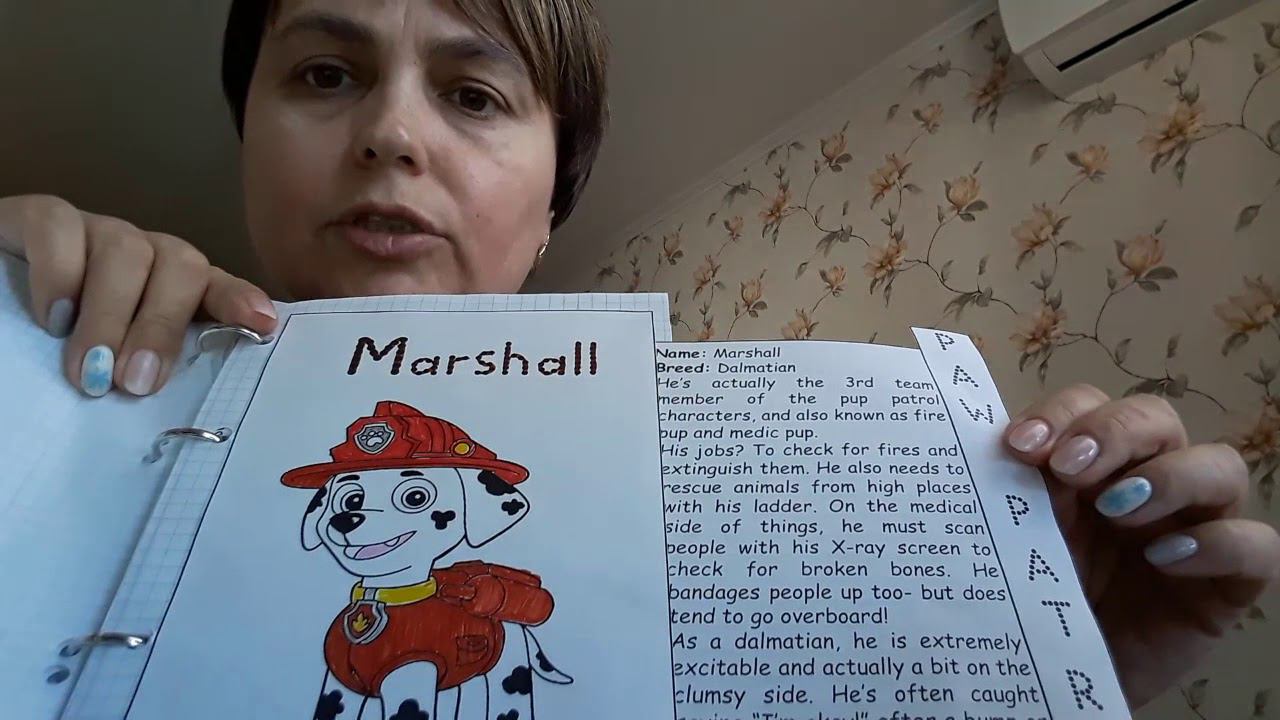 Marshall
Name: Marshall
Breed: Dalmatian
He's actually the 3rd team
member of the pup patrol
characters, and also known as fire
pup and medic pup.
His jobs? To check for fires and
extinguish them. He also needs to
rescue animals from high places
with his ladder. On the medical
side of things, he must scan
people with his X-ray screen to
check for broken bones. He
bandages people up too- but does
tend to go overboard!
As a dalmatian, he is extremely
excitable and actually a bit on the
clumsy side. He's often caught
"I'm okay!" after a bump or
PAW PATR